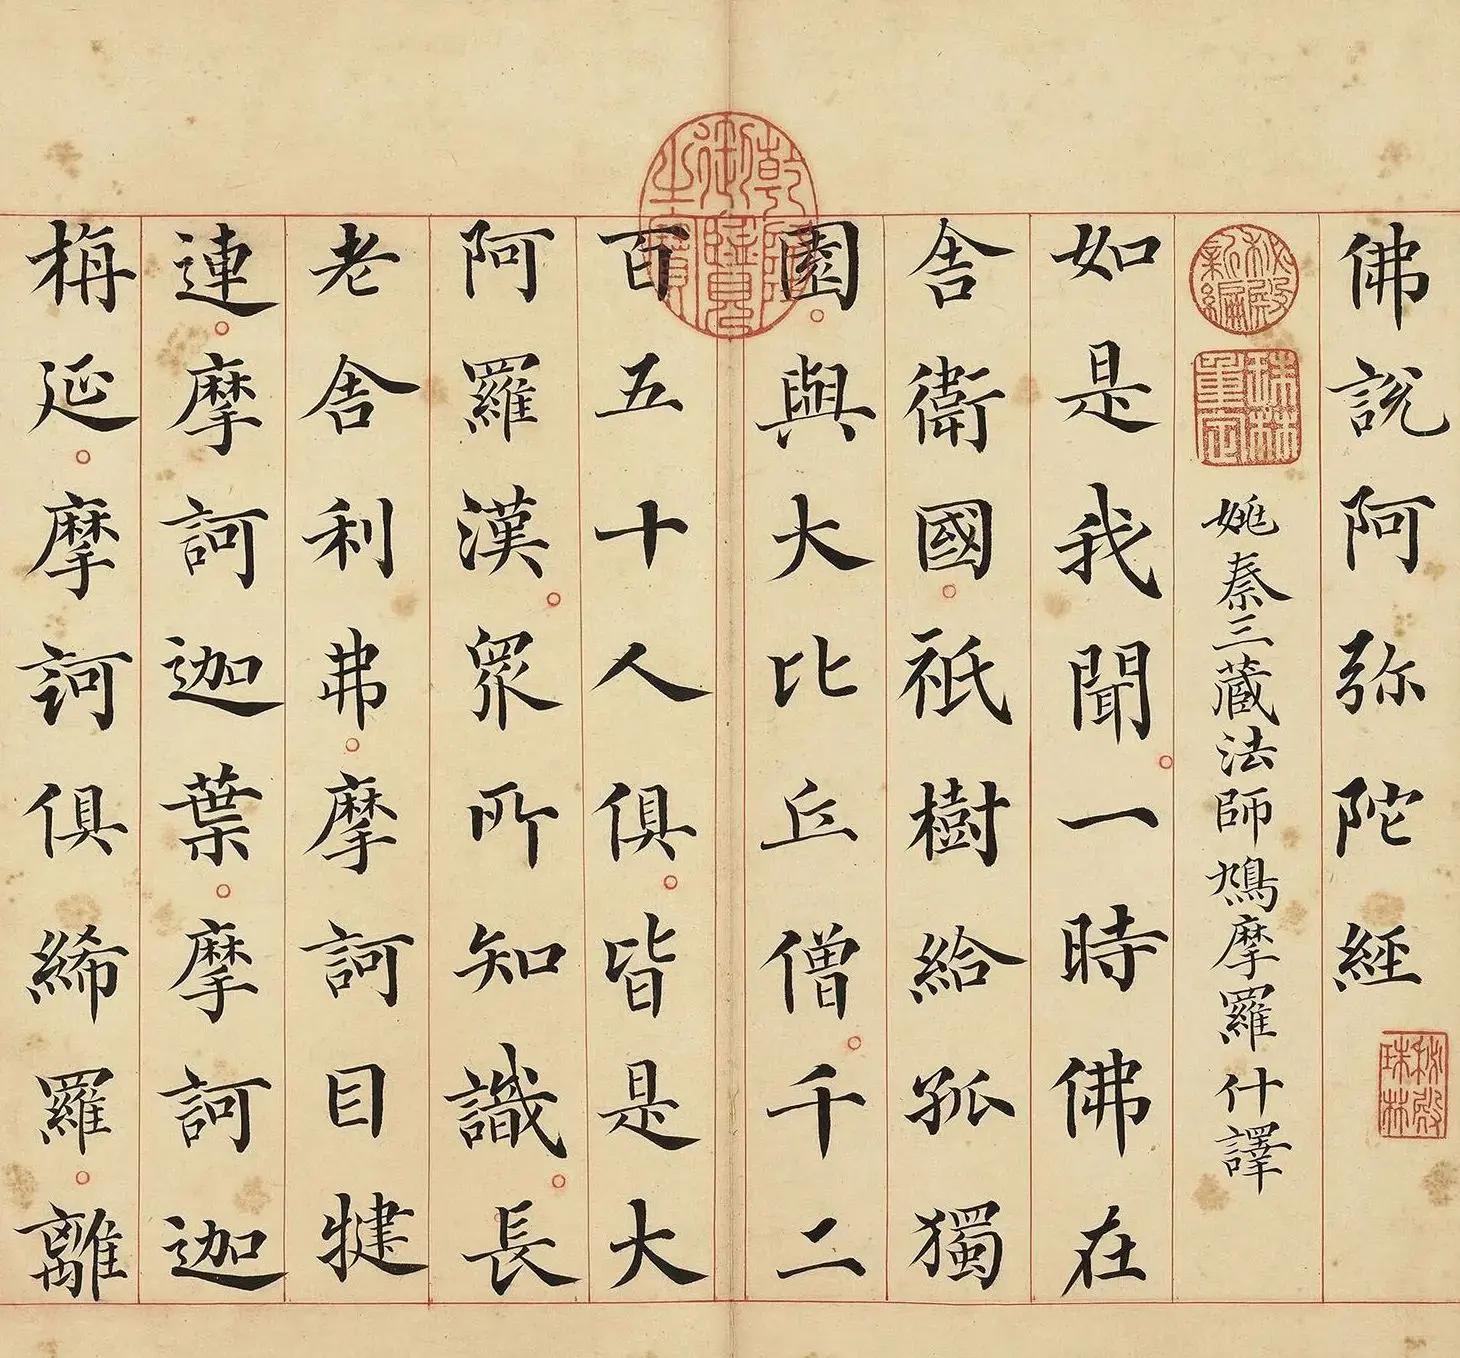 佛說阿弥陀經
秘殿珠林
秘殿新編
珠林重定
姚秦三藏法師鳩摩羅什譯
如是我聞。一時佛在
舍衛國。祇樹給孤獨
園。與大比丘僧。千二
乾隆御覽之寶
百五十人俱。皆是大
阿羅漢。眾所知識。長
老舍利弗。摩訶目犍
連。摩訶迦葉。摩訶迦
栴延。摩訶俱絺羅。離